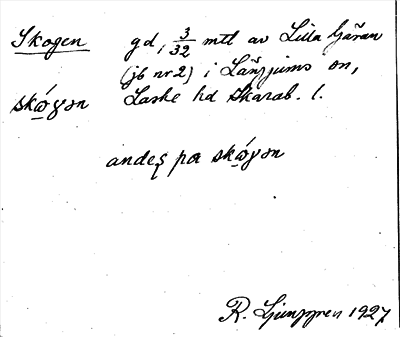 Skogen gd, 3/32 mtl av Lilla Gåran
(jb nr 2) i Länjums sn,
skóγən Laske hd Skarab. l.
andeʂ pa skóγən
R. Ljunggren 1927